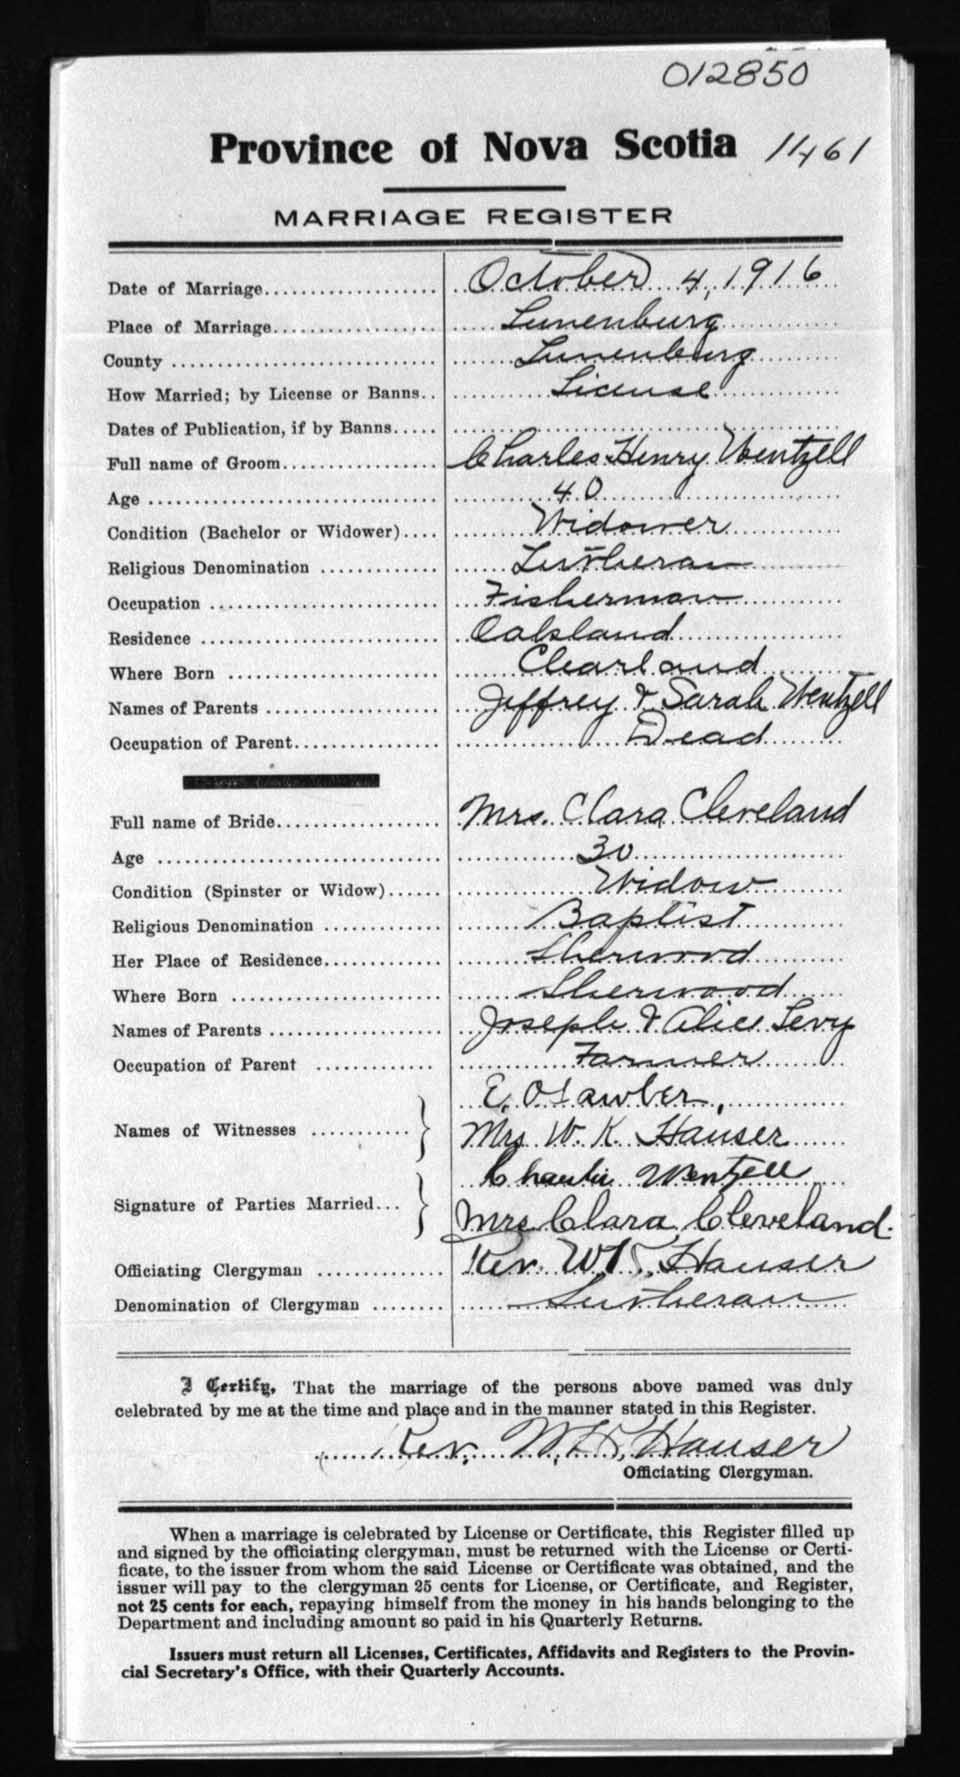 012850
Province of Nova Scotia 11461
MARRIAGE REGISTER
Date of Marriage.................... October 4, 1916
Place of Marriage.................. Lunenburg
County ............................ Lunenburg
How Married; by License or Banns.. License
Dates of Publication, if by Banns.....
Full name of Groom................. Charles Henry Wentzell
Age ............................... 40
Condition (Bachelor or Widower).... Widower
Religious Denomination ............ Lutheran
Occupation ........................ Fisherman
Residence ......................... Oakland
Where Born ........................ Clearland
Names of Parents .................. Jeffrey & Sarah Wentzell
Occupation of Parent............... Dead
Full name of Bride.................. Mrs. Clara Cleveland
Age ............................... 30
Condition (Spinster or Widow)...... Widow
Religious Denomination ............ Baptist
Her Place of Residence............. Sherwood
Where Born ........................ Sherwood
Names of Parents .................. Joseph & Alice Levy
Occupation of Parent ............. Farmer
Names of Witnesses ........... E.
Mrs W. K. Hauser
Signature of Parties Married... Charlie Wentzell
Mrs Clara Cleveland.
Officiating Clergyman .............. Rev. W. K. Hauser
Denomination of Clergyman ........ Lutheran
I Certify, That the marriage of the persons above named was duly
celebrated by me at the time and place and in the manner stated in this Register.
Rev. W. K. Hauser
Officiating Clergyman.
When a marriage is celebrated by License or Certificate, this Register filled up
and signed by the officiating clergyman, must be returned with the License or Certi-
ficate, to the issuer from whom the said License or Certificate was obtained, and the
issuer will pay to the clergyman 25 cents for License, or Certificate, and Register,
not 25 cents for each, repaying himself from the money in his hands belonging to the
Department and including amount so paid in his Quarterly Returns.
Issuers must return all Licenses, Certificates, Affidavits and Registers to the Provin-
cial Secretary's Office, with their Quarterly Accounts.